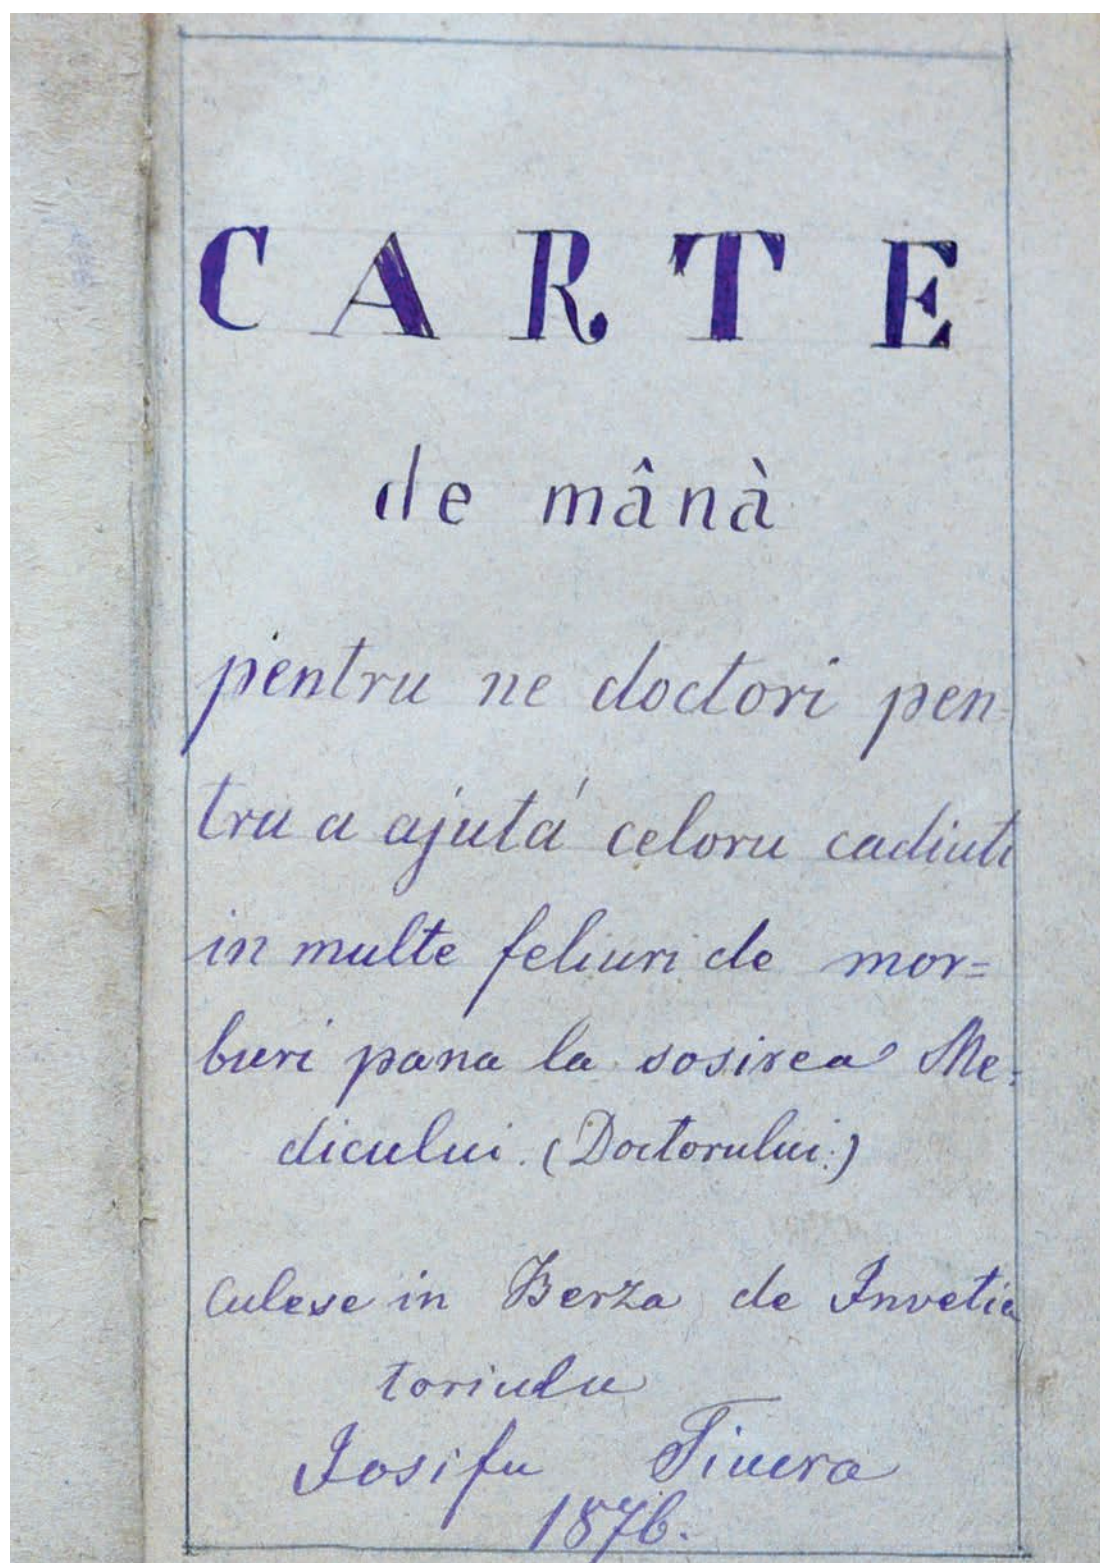 CARTE
de mânà
pentru ne doctori pen-
tru a ajutá celoru cadiuti
in multe feliuri de mor=
buri pana la sosirea Me-
dicului. (Doctorului.)
Culese in Berza de Invetia
toriulu
Iosifu
1876.